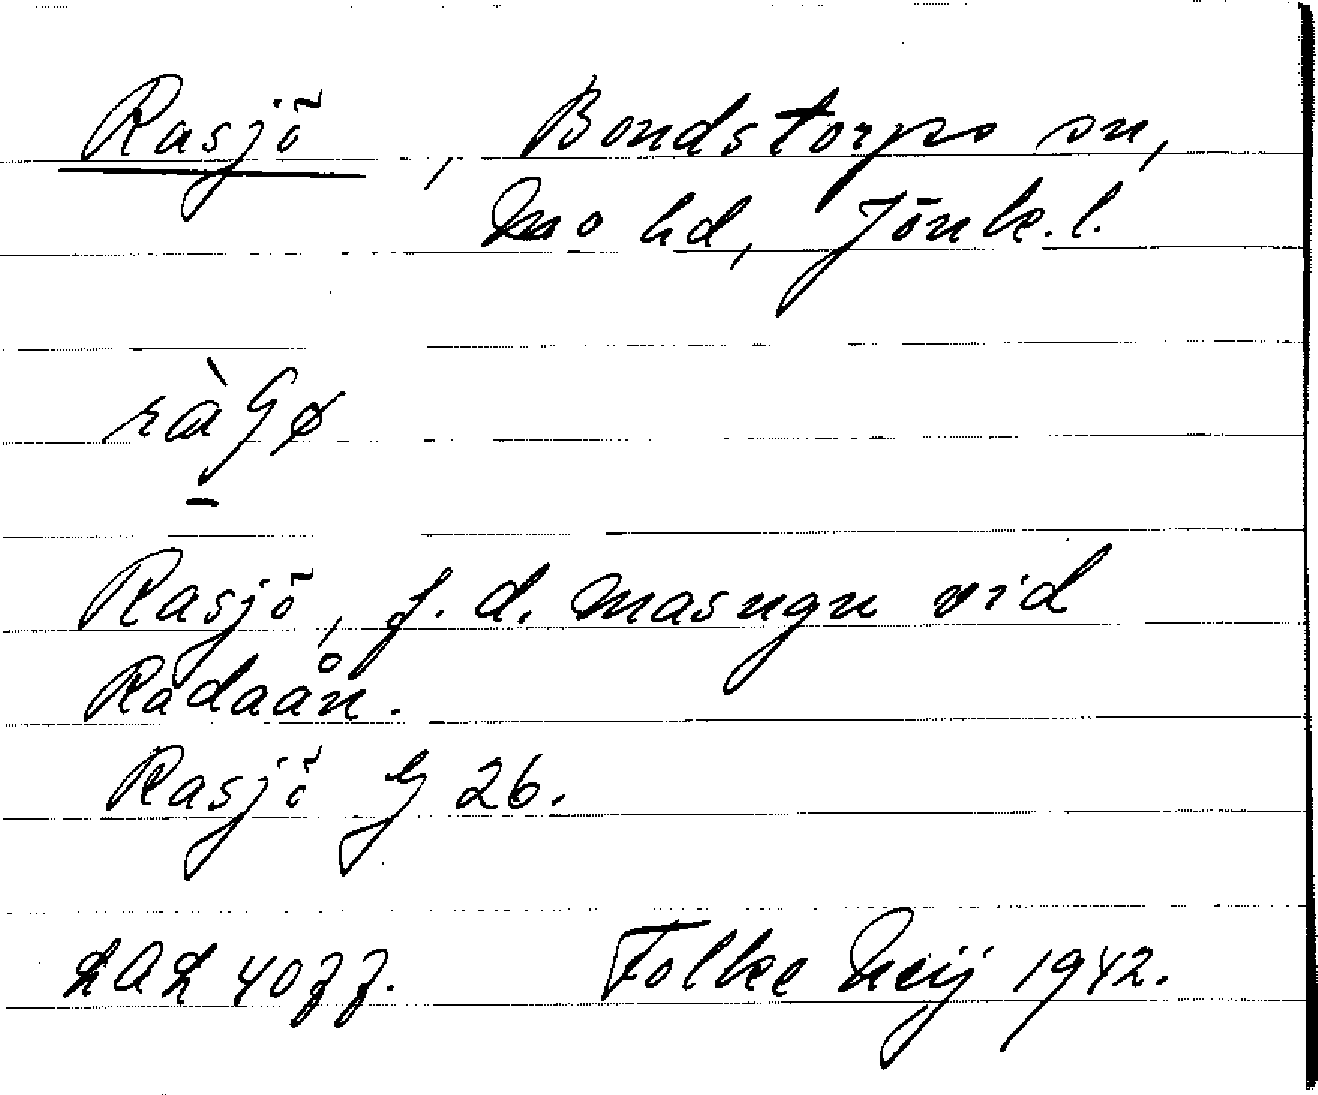 Rasjö, Bondstorps sn,
Mo hd, Jönk.l.
Rasjö, f.d. masugn vid
Rådaån.
Rasjö G 26.
4077. Folke Neij 1942.